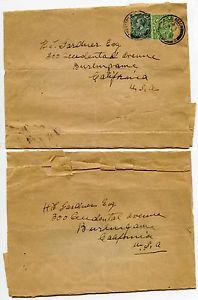 H.T. Gardner Esq
300 Occidental avenue
Burlingame
California
U.S.A
H.T. Gardner Esq
300 Occidental avenue
Burlingame
California
U.S.A